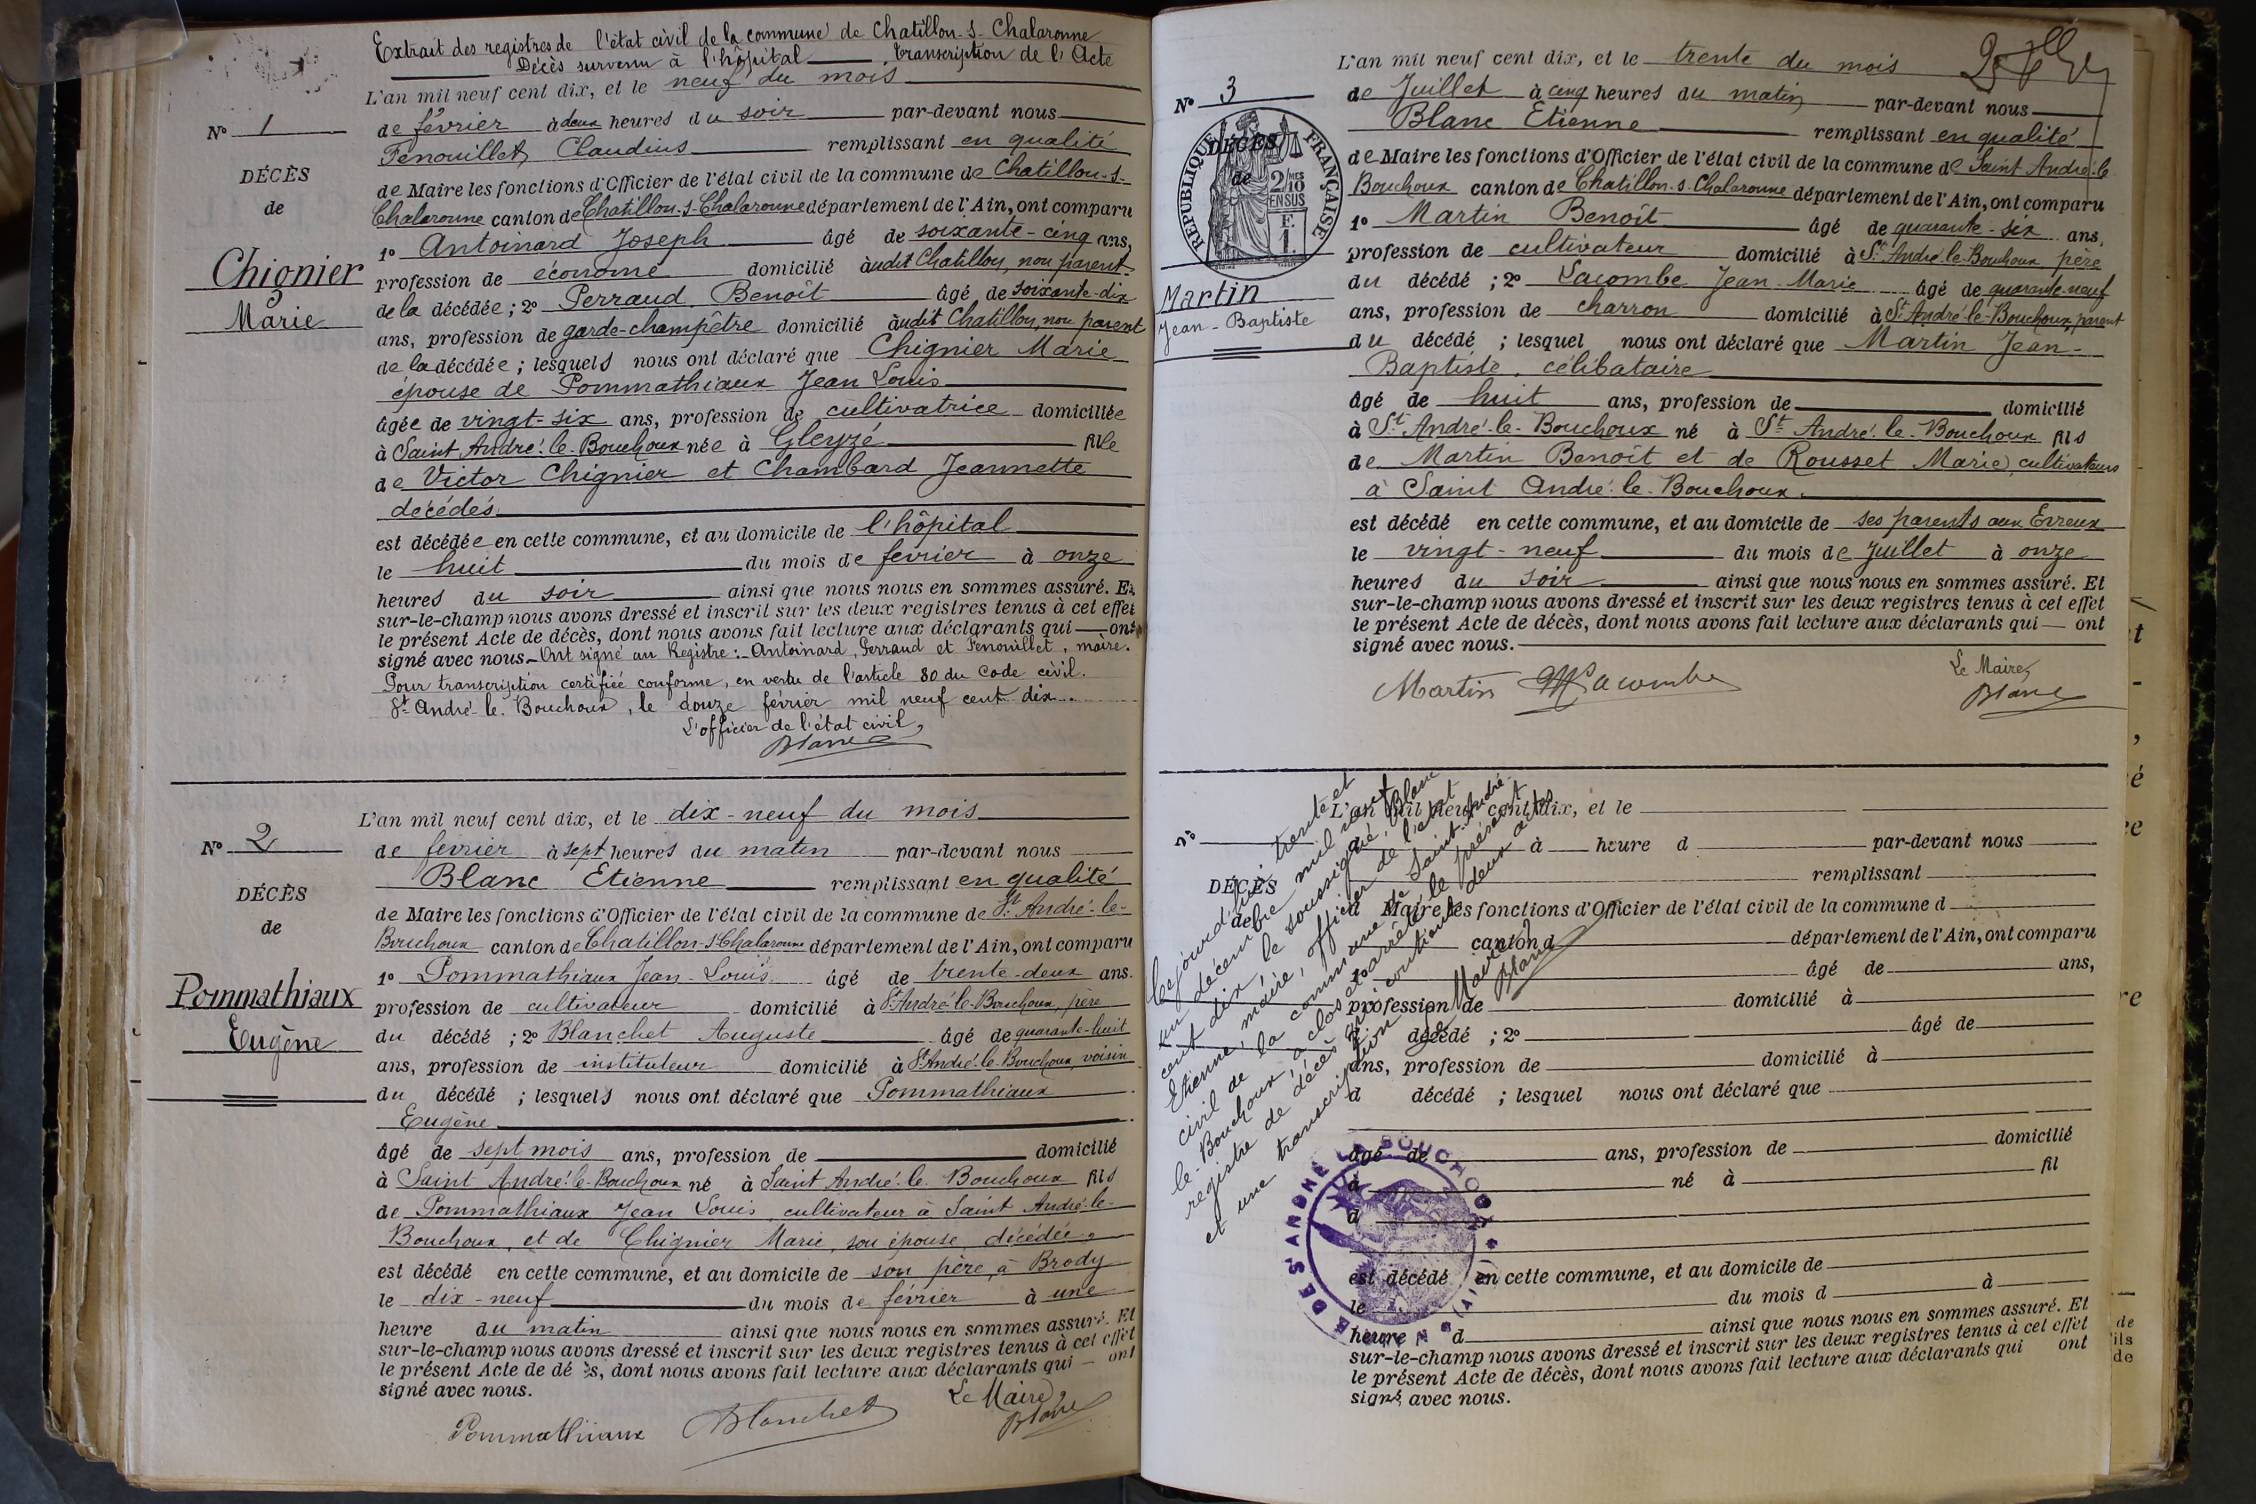 Extrait des registres de l'état civil de la commune de Chatillon-s-Chalaronne
Décès survenu à l'hôpital transcription de l'Acte
L'an mil neuf cent dix, et le neuf du mois
N° 1
de février à deux heures du soir par-devant nous
Fenouillet Claudius remplissant en qualité
DÉCÈS
de
de Maire les fonctions d'Officier de l'état civil de la commune de Chatillon-s-
Chalaronne canton de Chatillon-s-Chalaronne département de l'Ain, ont comparu
1° Antoinard Joseph âgé de soixante-cinq ans,
Chignier
Marie
profession de économe domicilié audit Chatillon, non parent
de la décédée ; 2° Perraud Benoît âgé de soixante-dix
ans, profession de garde-champêtre domicilié audit Chatillon, non parent
de la décédée ; lesquels nous ont déclaré que Chignier Marie
épouse de Pommathiaux Jean Louis
âgée de vingt-six ans, profession de cultivatrice domiciliée
à Saint André-le-Bouchoux née à Gleyzé fille
de Victor Chignier et Chambard Jeannette
décédés
est décédée en cette commune, et au domicile de l'hôpital
le huit du mois de février à onze
heures du soir ainsi que nous nous en sommes assuré. Et
sur-le-champ nous avons dressé et inscrit sur les deux registres tenus à cet effet
le présent Acte de décès, dont nous avons fait lecture aux déclarants qui ont
signé avec nous. Ont signé au Registre : Antoinard, Perraud et Fenouillet, maire.
Pour transcription certifiée conforme, en vertu de l'article 80 du Code civil.
St André-le-Bouchoux, le douze février mil neuf cent dix.
L'officier de l'état civil,
Blanc
L'an mil neuf cent dix, et le dix-neuf du mois
N° 2
de février à sept heures du matin par-devant nous
Blanc Etienne remplissant en qualité
DÉCÈS
de
de Maire les fonctions d'Officier de l'état civil de la commune de St André-le-
Bouchoux canton de Chatillon-s-Chalaronne département de l'Ain, ont comparu
1° Pommathiaux Jean-Louis âgé de trente-deux ans.
Pommathiaux
Eugène
profession de cultivateur domicilié à St André-le-Bouchoux, père
du décédé ; 2° Blanchet Auguste âgé de quarante-huit
ans, profession de instituteur domicilié à St André-le-Bouchoux, voisin
du décédé ; lesquels nous ont déclaré que Pommathiaux
Eugène
âgé de sept mois ans, profession de domicilié
à Saint André-le-Bouchoux né à Saint André-le-Bouchoux fils
de Pommathiaux Jean Louis, cultivateur à Saint André-le-
Bouchoux, et de Chignier Marie, son épouse, décédée.
est décédé en cette commune, et au domicile de son père, à Brody
le dix-neuf du mois de février à une
heure du matin ainsi que nous nous en sommes assuré. Et
sur-le-champ nous avons dressé et inscrit sur les deux registres tenus à cet effet
le présent Acte de décès, dont nous avons fait lecture aux déclarants qui ont
signé avec nous.
Le Maire,
Pommathiaux Blanchet Blanc
L'an mil neuf cent dix, et le trente du mois
N° 3
de Juillet à cinq heures du matin par-devant nous
Blanc Etienne remplissant en qualité
DÉCÈS
de
RÉPUBLIQUE FRANÇAISE
2/10 MES
EN SUS
F.
1.
de Maire les fonctions d'Officier de l'état civil de la commune de Saint André-le-
Bouchoux canton de Chatillon-s-Chalaronne département de l'Ain, ont comparu
1° Martin Benoît âgé de quarante-six ans,
profession de cultivateur domicilié à St André-le-Bouchoux père
Martin
Jean-Baptiste
du décédé ; 2° Lacombe Jean-Marie âgé de quarante-neuf
ans, profession de charron domicilié à St André-le-Bouchoux, parent
du décédé ; lesquel nous ont déclaré que Martin Jean-
Baptiste, célibataire
âgé de huit ans, profession de domicilié
à St André-le-Bouchoux né à St André-le-Bouchoux fils
de Martin Benoît et de Rousset Marie, cultivateurs
à Saint André-le-Bouchoux.
est décédé en cette commune, et au domicile de ses parents aux Erreux
le vingt-neuf du mois de Juillet à onze
heures du soir ainsi que nous nous en sommes assuré. Et
sur-le-champ nous avons dressé et inscrit sur les deux registres tenus à cet effet
le présent Acte de décès, dont nous avons fait lecture aux déclarants qui ont
signé avec nous.
Le Maire,
Martin Lacombe Blanc
L'an mil neuf cent dix, et le
N°
à heure d par-devant nous
remplissant
DÉCÈS
de
d Maire les fonctions d'Officier de l'état civil de la commune d
canton d département de l'Ain, ont comparu
âgé de ans,
profession de domicilié à
d décédé ; 2° âgé de
ans, profession de domicilié à
d décédé ; lesquel nous ont déclaré que
âgé de ans, profession de domicilié
à né à fil
d
est décédé en cette commune, et au domicile de
le du mois d à
heure d ainsi que nous nous en sommes assuré. Et
sur-le-champ nous avons dressé et inscrit sur les deux registres tenus à cet effet
le présent Acte de décès, dont nous avons fait lecture aux déclarants qui ont
signé avec nous.
Cejourd'hui trente et
un décembre mil neuf
cent dix, le soussigné, Blanc
Etienne, maire, officier de l'état
civil de la commune de Saint-André-
le-Bouchoux, a clos et arrêté le présent
registre de décès qui contient deux actes
et une transcription
Le Maire,
Blanc
DE ST ANDRÉ LE BOUCHOUX (AIN)